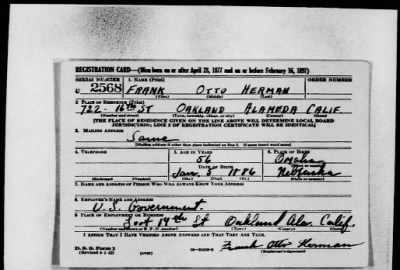 REGISTRATION CARD—(Men born on or after April 28, 1877 and on or before February 16, 1897)
SERIAL NUMBER 1. NAME (Print) ORDER NUMBER
U 2568 FRANK OTTO HERMAN
(First) (Middle) (Last)
2. PLACE OF RESIDENCE (Print)
722-16TH ST OAKLAND ALAMEDA CALIF.
(Number and street) (Town, township, village, or city) (County) (State)
[THE PLACE OF RESIDENCE GIVEN ON THE LINE ABOVE WILL DETERMINE LOCAL BOARD
JURISDICTION; LINE 2 OF REGISTRATION CERTIFICATE WILL BE IDENTICAL]
3. MAILING ADDRESS
Same
[Mailing address if other than place indicated on line 2. If same insert word same]
4. TELEPHONE 5. AGE IN YEARS 6. PLACE OF BIRTH
56 Omaha
DATE OF BIRTH (Town or county)
Jan. 5 1886 Nebraska
(Exchange) (Number) (Mo.) (Day) (Yr.) (State or country)
7. NAME AND ADDRESS OF PERSON WHO WILL ALWAYS KNOW YOUR ADDRESS
8. EMPLOYER'S NAME AND ADDRESS
U.S. Government.
9. PLACE OF EMPLOYMENT OR BUSINESS
19th St Oakland Ala. Calif.
(Number and street or R. F. D. number) (Town) (County) (State)
I AFFIRM THAT I HAVE VERIFIED ABOVE ANSWERS AND THAT THEY ARE TRUE.
D. S. S. Form 1
(Revised 4-1-42) (over) Frank Otto Herman